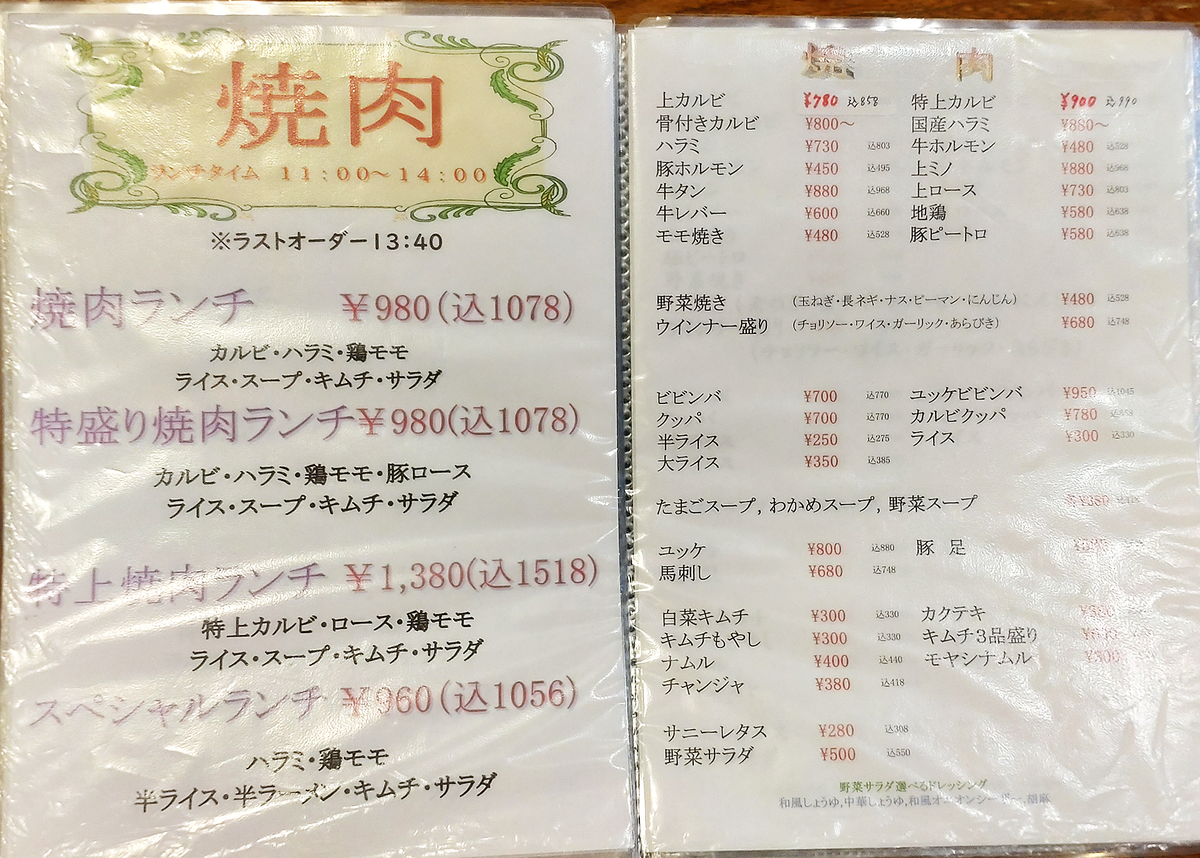 焼肉
ランチタイム 11:00～14:00
※ラストオーダー13:40
焼肉ランチ ￥980(込1078)
カルビ・ハラミ・鶏モモ
ライス・スープ・キムチ・サラダ
特盛り焼肉ランチ￥980(込1078)
カルビ・ハラミ・鶏モモ・豚ロース
ライス・スープ・キムチ・サラダ
特上焼肉ランチ ￥1,380(込1518)
特上カルビ・ロース・鶏モモ
ライス・スープ・キムチ・サラダ
スペシャルランチ ￥960(込1056)
ハラミ・鶏モモ
半ライス・半ラーメン・キムチ・サラダ
焼 肉
上カルビ ¥780 込858 特上カルビ ¥900 込990
骨付きカルビ ¥800～ 国産ハラミ ¥880～
ハラミ ¥730 込803 牛ホルモン ¥480 込528
豚ホルモン ¥450 込495 上ミノ ¥880 込968
牛タン ¥880 込968 上ロース ¥730 込803
牛レバー ¥600 込660 地鶏 ¥580 込638
モモ焼き ¥480 込528 豚ピートロ ¥580 込638
野菜焼き (玉ねぎ・長ネギ・ナス・ピーマン・にんじん) ¥480 込528
ウインナー盛り (チョリソー・ワイス・ガーリック・あらびき) ¥680 込748
ビビンバ ¥700 込770 ユッケビビンバ ¥950 込1045
クッパ ¥700 込770 カルビクッパ ¥780 込858
半ライス ¥250 込275 ライス ¥300 込330
大ライス ¥350 込385
たまごスープ, わかめスープ, 野菜スープ ¥380
ユッケ ¥800 込880 豚 足
馬刺し ¥680 込748
白菜キムチ ¥300 込330 カクテキ
キムチもやし ¥300 込330 キムチ3品盛り
ナムル ¥400 込440 モヤシナムル ¥300
チャンジャ ¥380 込418
サニーレタス ¥280 込308
野菜サラダ ¥500 込550
野菜サラダ選べるドレッシング
和風しょうゆ,中華しょうゆ,和風オニオンシーザー,胡麻